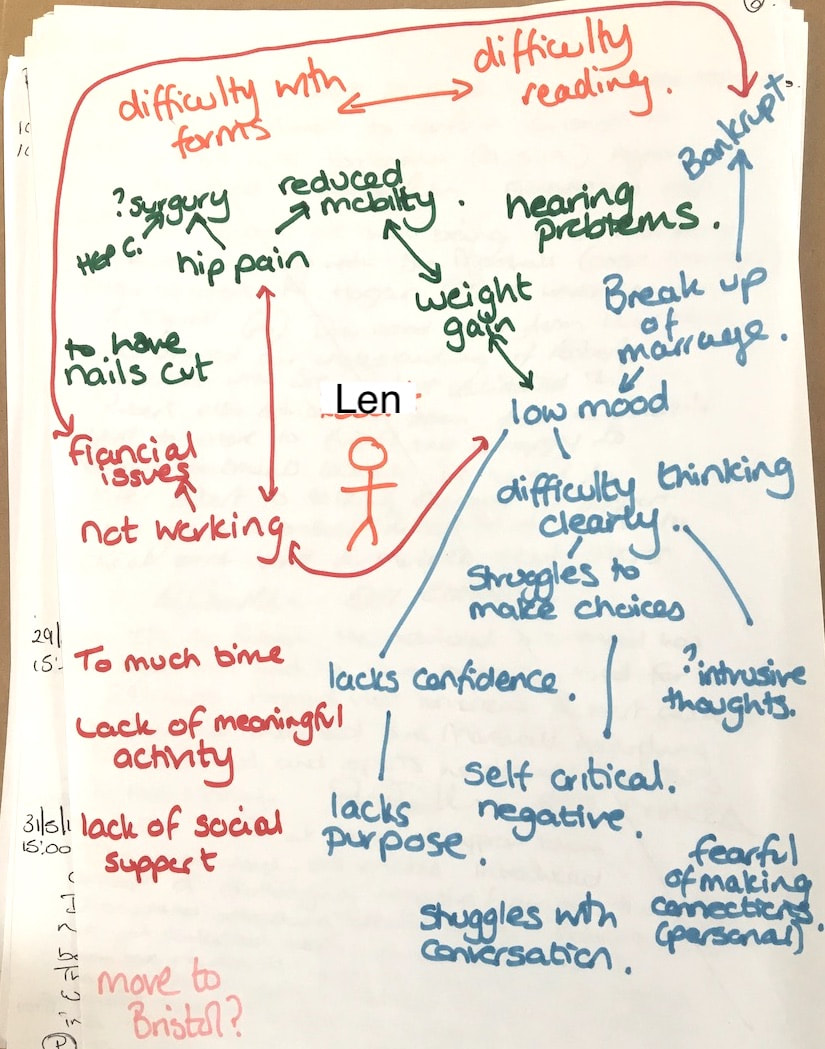 difficulty with
forms
difficulty
reading.
Bankrupt
? surgury
Hep C.
hip pain
reduced
mobility.
hearing
problems.
weight
gain
Break up
of
marrage.
to have
nails cut
Len
low mood
fiancial
issues
not working
difficulty thinking
clearly..
Struggles to
make choices
To much time
lacks confidence.
? intrusive
thoughts.
Lack of meaningful
activity
Self critical.
negative.
lacks
purpose.
lack of social
support
fearful
of making
connections.
(personal)
Struggles with
conversation.
move to
Bristol?
29/
15:
31/5/1
15:00